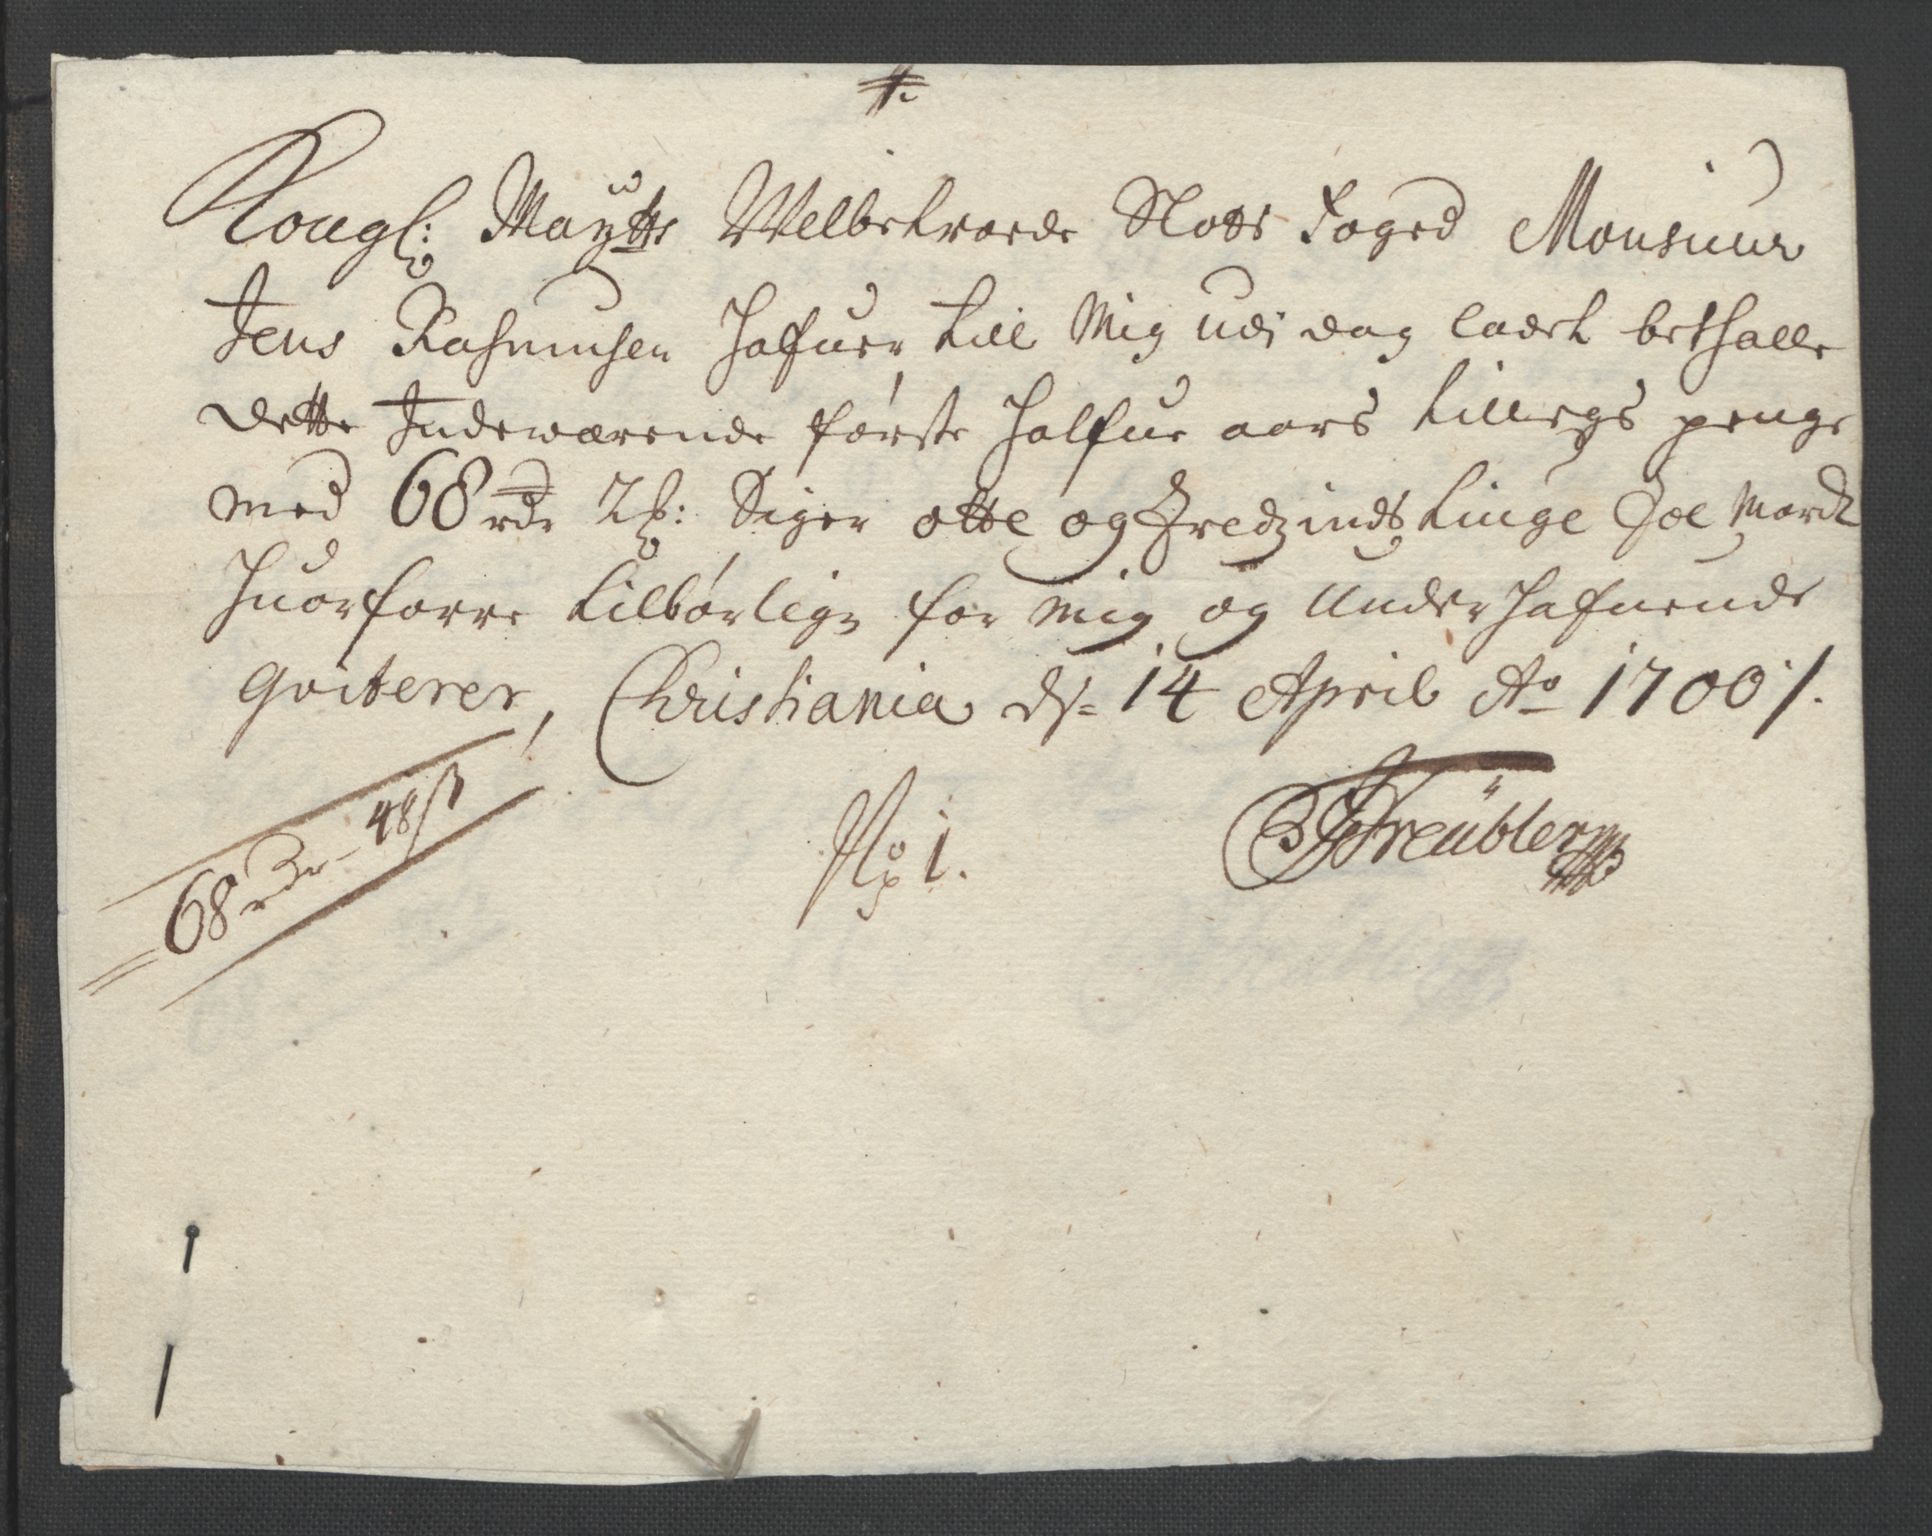 Kongl: Maytts Welbetroede Slots Foged Monsiuur
Jens Rasmusen Hafuer till Mig udi dag ladet bethalle
dette Indeværende første Halfue aars tillegs penge
med 68 rdr 2 ß: Siger otte og tredzindstiuge
Huorforre tilbørlige for mig og Underhafuende
Qviterer, Christiania ds= 14 April Ao 1700 /.
68 rdr - 48 ß
No 1.
Treübler